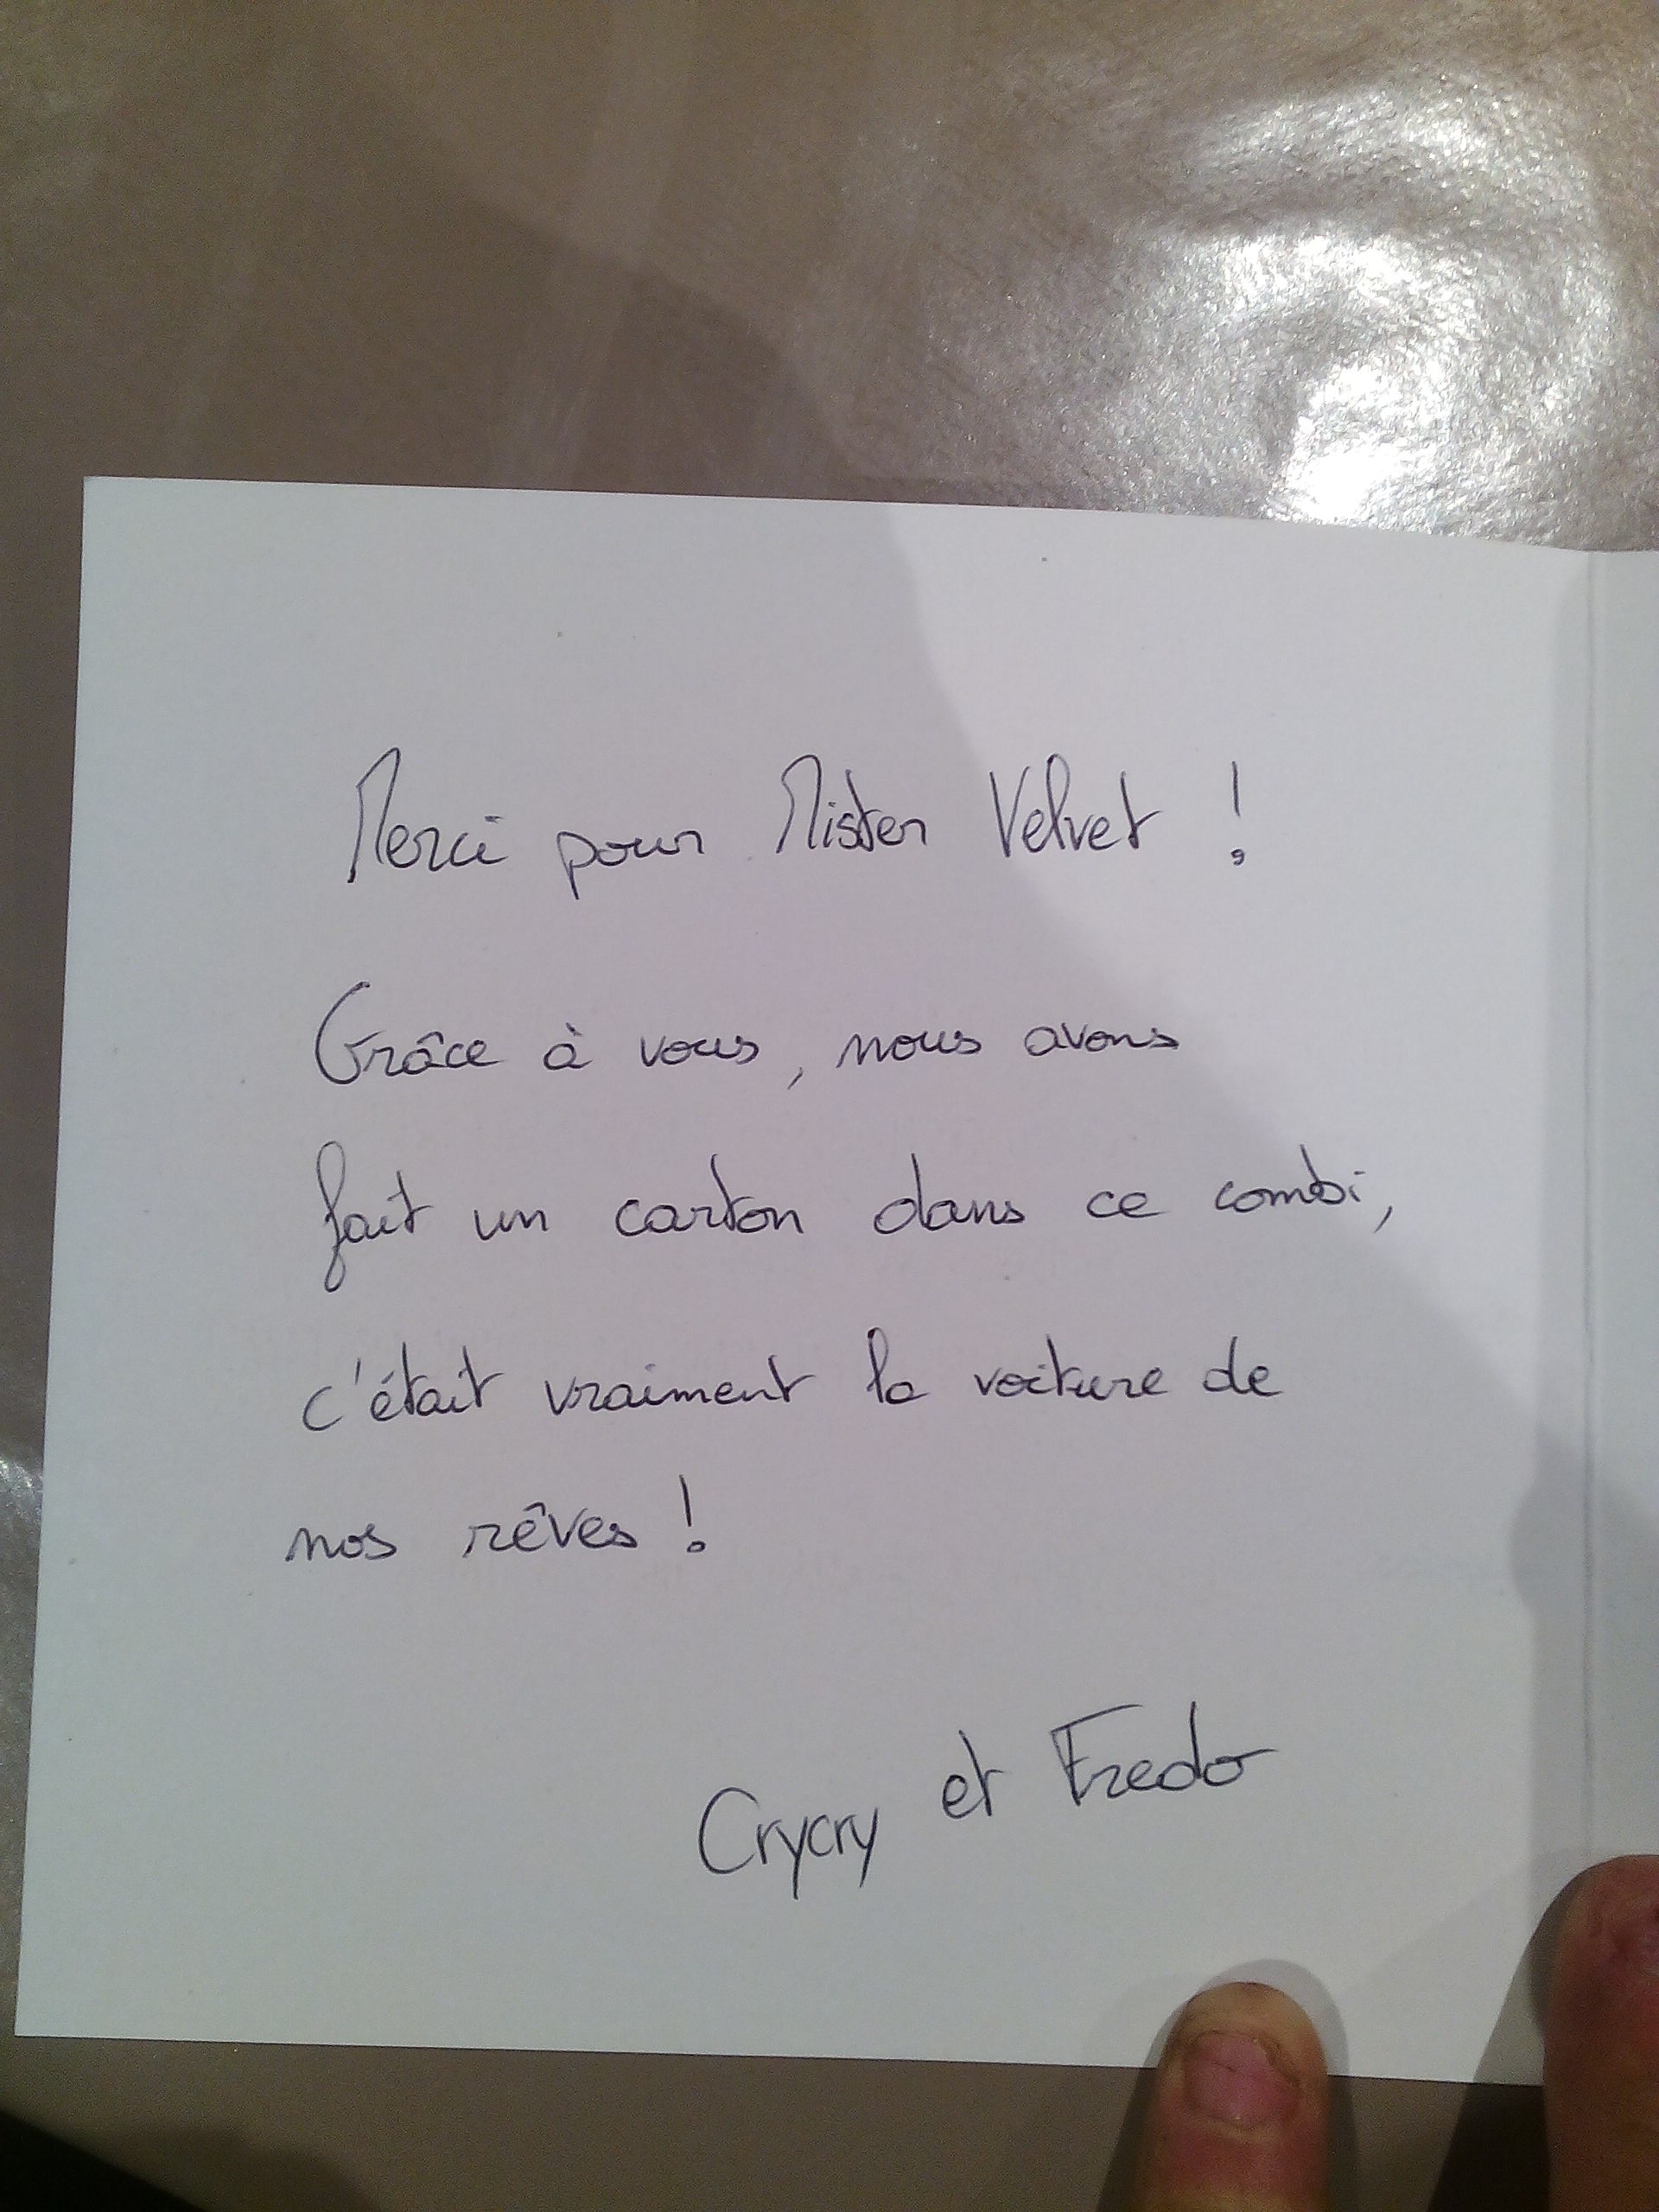 Merci pour Mister Velvet !
Grâce à vous, nous avons
fait un carton dans ce combi,
c'était vraiment la voiture de
nos rêves !
Crycry et Fredo